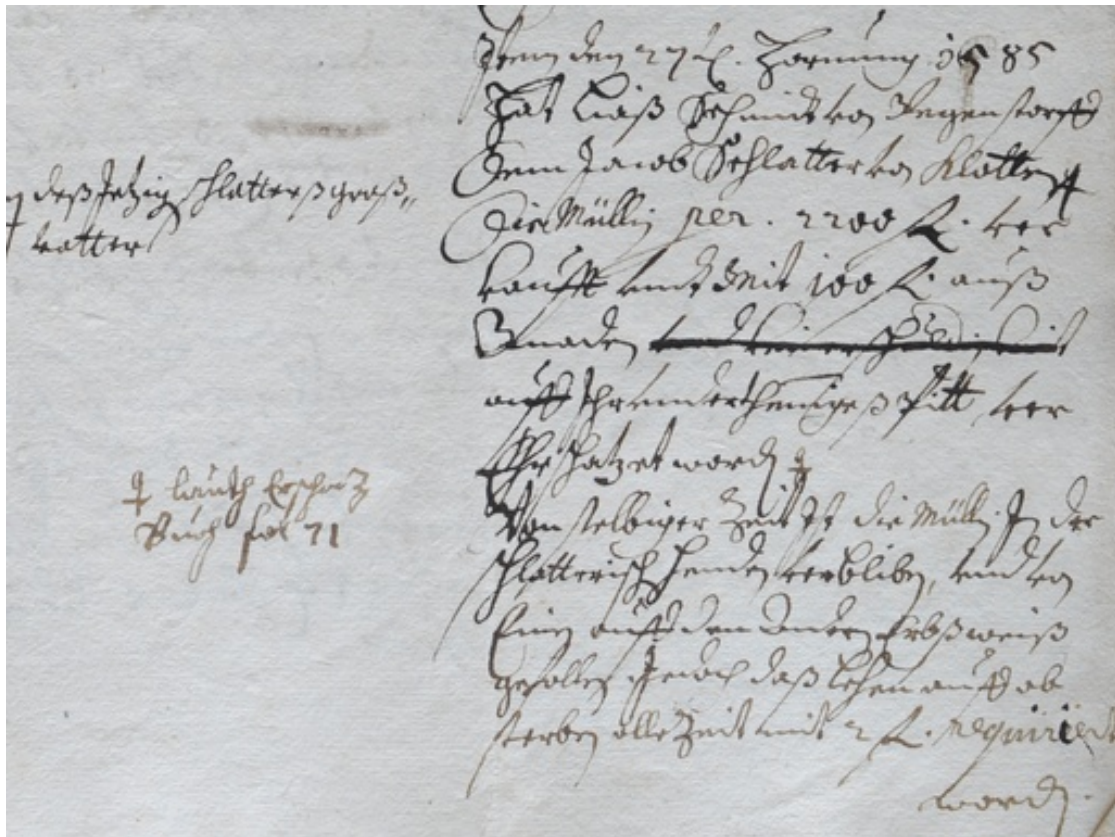 Item den 27t. Hornung 1585
Hat Liaß Schmidt von Regenstorff
dem Jacob Schlatter von Klotten
die Mülli per . 2200 fl. ver
kaufft undt Mit 100 fl. auß
Gnaden
auff Ihr underthenigeß Pitt, ver
Ehrschatzet worden
Von selbiger Zeit Ist die Mülli In der
schlatterisch henden verbliben, und von
Einem auff den Anderen Erbßweiß
gefallen Jedoch daß Lehen auff ab
sterben alle Zeit mit 2 fl. requiriert
worden.
deß Jetzigen Schlatterß groß„
vatter
lauth Erschatz
Buch fol 71